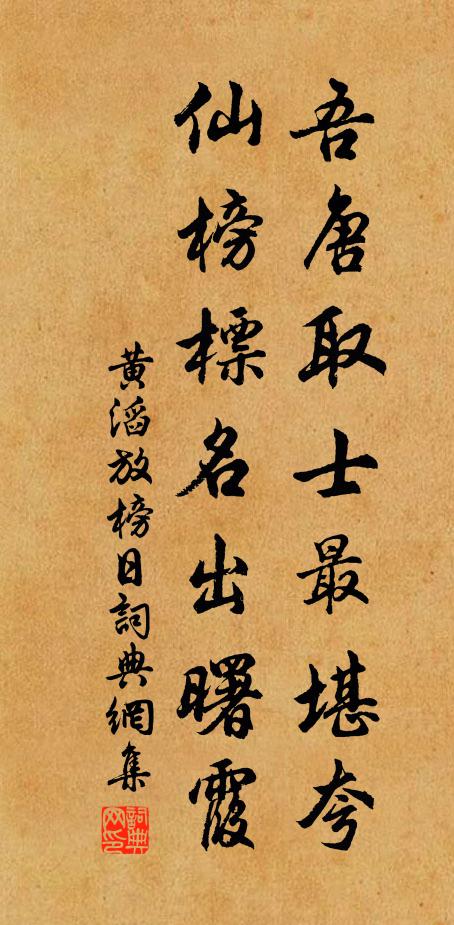 吾唐取士最堪夸
仙榜標名出曙霞
黃滔放榜日詞典網集
詞典网印